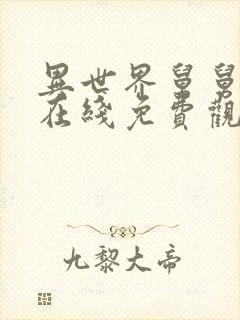 異世界舅舅
在綫免費觀
九黎大帝